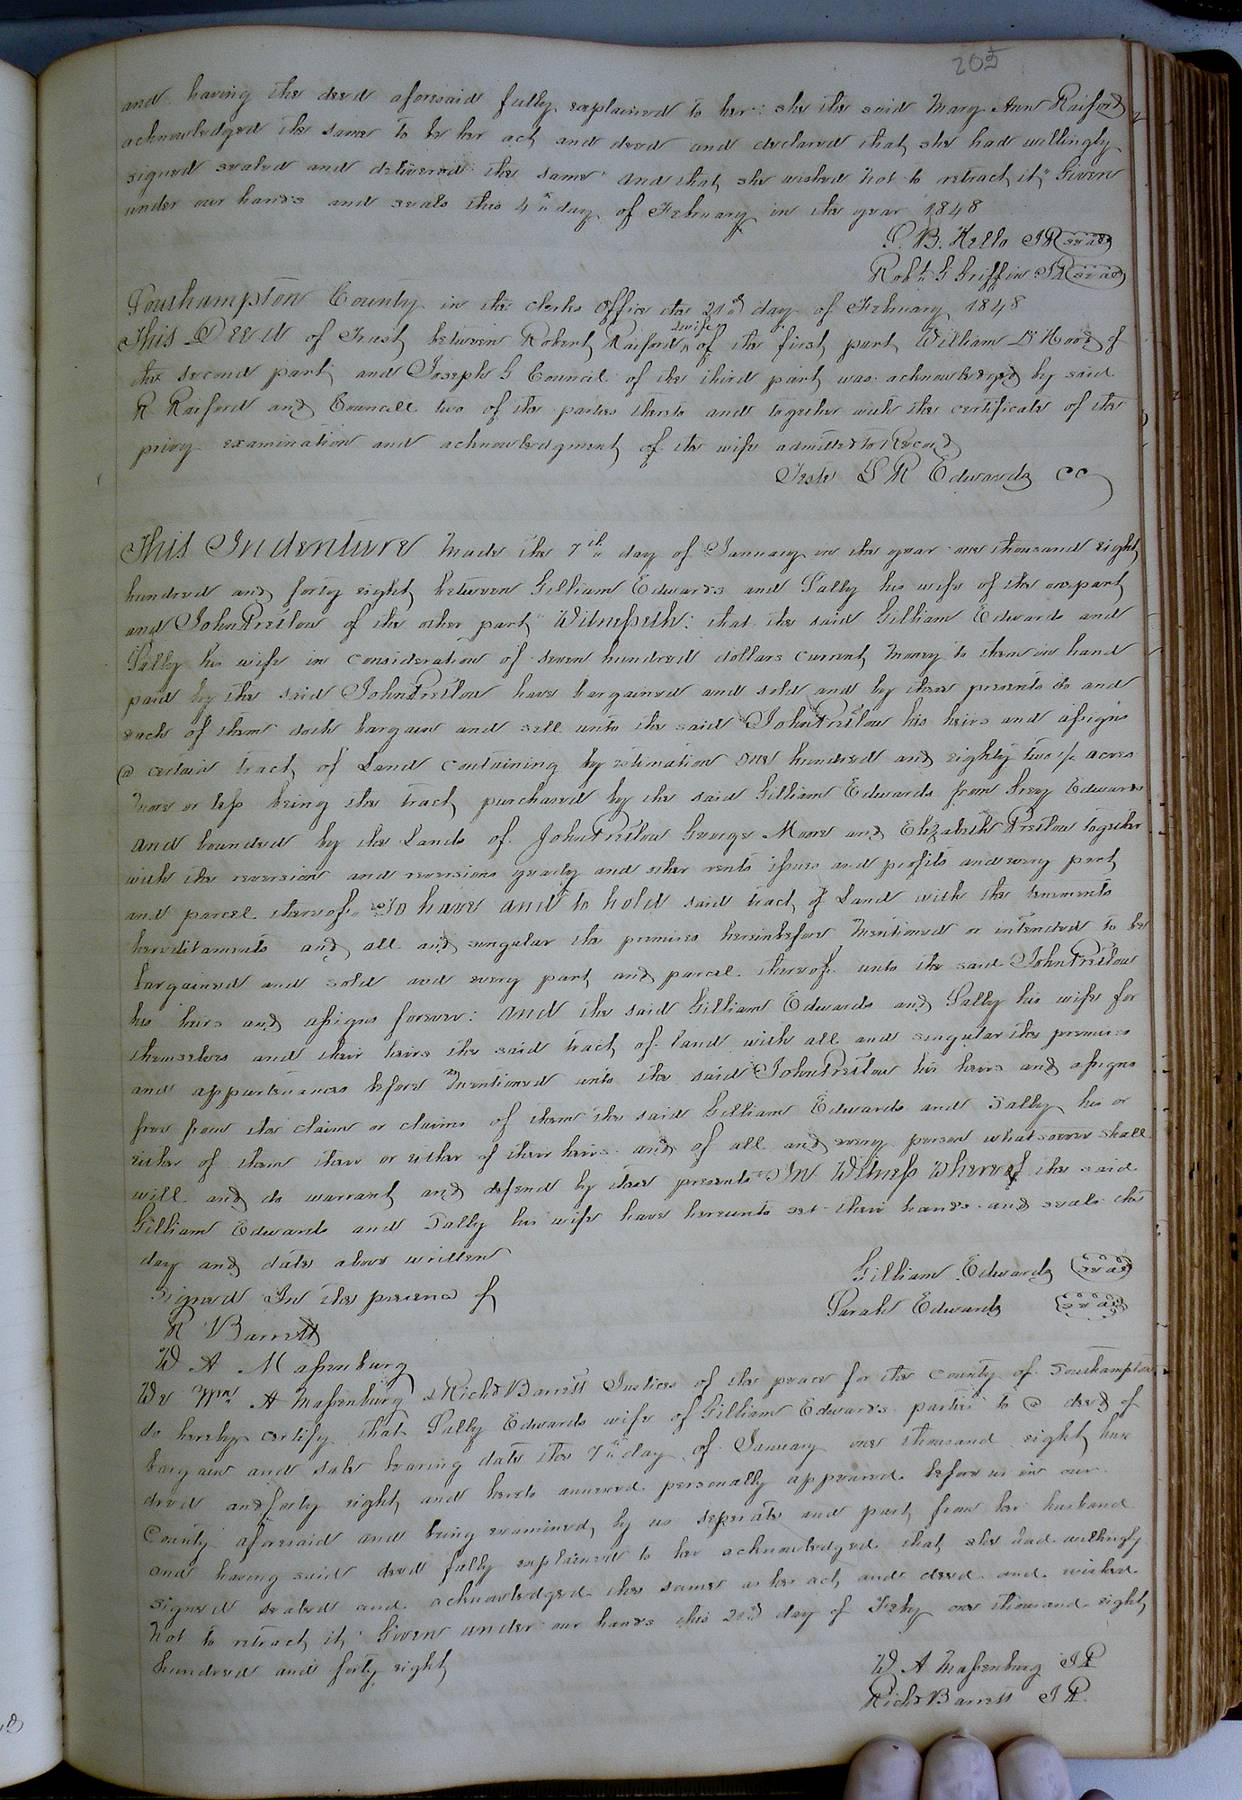 205
and having the deed aforesaid fully explained to her: she the said Mary Ann Raiford
acknowledged the same to be her act and deed and declared that she had willingly
signed sealed and delivered the same and that she wished not to retract it. Given
under our hands and seals this 4th day of February in the year 1848
B. Kello JP seal
Robt. G Griffin JP seal
Southampton County in the clerks Office the 21st day of February 1848
This Deed of Trust between Robert Raiford & wife of the first part William D Hood of
the second part and Joseph G Council of the third part was acknowledged by said
R Raiford and Councill two of the parties thereto and together with the certificate of the
privy examination and acknowledgment of the wife admitted to Record
Teste L R Edwards CC
This Indenture made the 7th day of January in the year one thousand eight
hundred and forty eight between Gilliam Edwards and Sally his wife of the one part
and John Pretlow of the other part Witnesseth: that the said Gilliam Edwards and
Sally his wife in consideration of seven hundred dollars current money to them in hand
paid by the said John Pretlow have bargained and sold and by these presents do and
each of them doth bargain and sell unto the said John Pretlow his heirs and assigns
a certain tract of Land containing by estimation one hundred and eighty two ½ acres
more or less being the tract purchased by the said Gilliam Edwards from Edwards
and bounded by the Lands of John Pretlow George Moore and Elizabeth Pretlow together
with the reversion and reversions yearly and other rents issues and profits and every part
and parcel thereof. To have and to hold said tract of Land with the tenements
hereditaments and all and singular the premises hereinbefore mentioned or intended to be
bargained and sold and every part and parcel thereof unto the said John Pretlow
his heirs and assigns forever: and the said Gilliam Edwards and Sally his wife for
themselves and their heirs the said tract of land with all and singular the premises
and appurtenances before mentioned unto the said John Pretlow his heirs and assigns
free from the claim or claims of them the said Gilliam Edwards and Sally his or
either of them their or either of their heirs and of all and every person whatsoever shall
will and do warrant and defend by these presents In Witness Whereof the said
Gilliam Edwards and Sally his wife have hereunto set their hands and seals the
day and date above written
Signed In the presence of Gilliam Edwards seal
R Barrett Sarah Edwards seal
W A Massenburg
We Wm. A Massenburg & Richd Barrett Justices of the peace for the county of Southampton
do hereby certify that Sally Edwards wife of Gilliam Edwards parties to a deed of
bargain and sale bearing date the 7th day of January one thousand eight hun
dred and forty eight and hereto annexed personally appeared before us in our
County aforesaid and being examined by us seperate and part from her husband
and having said deed fully explained to her acknowledged that she had willingly
signed sealed and acknowledged the same as her act and deed and wished
not to retract it. Given under our hands this day of Feby one thousand eight
hundred and forty eight
W A Massenburg JP
Richd Barrett JP